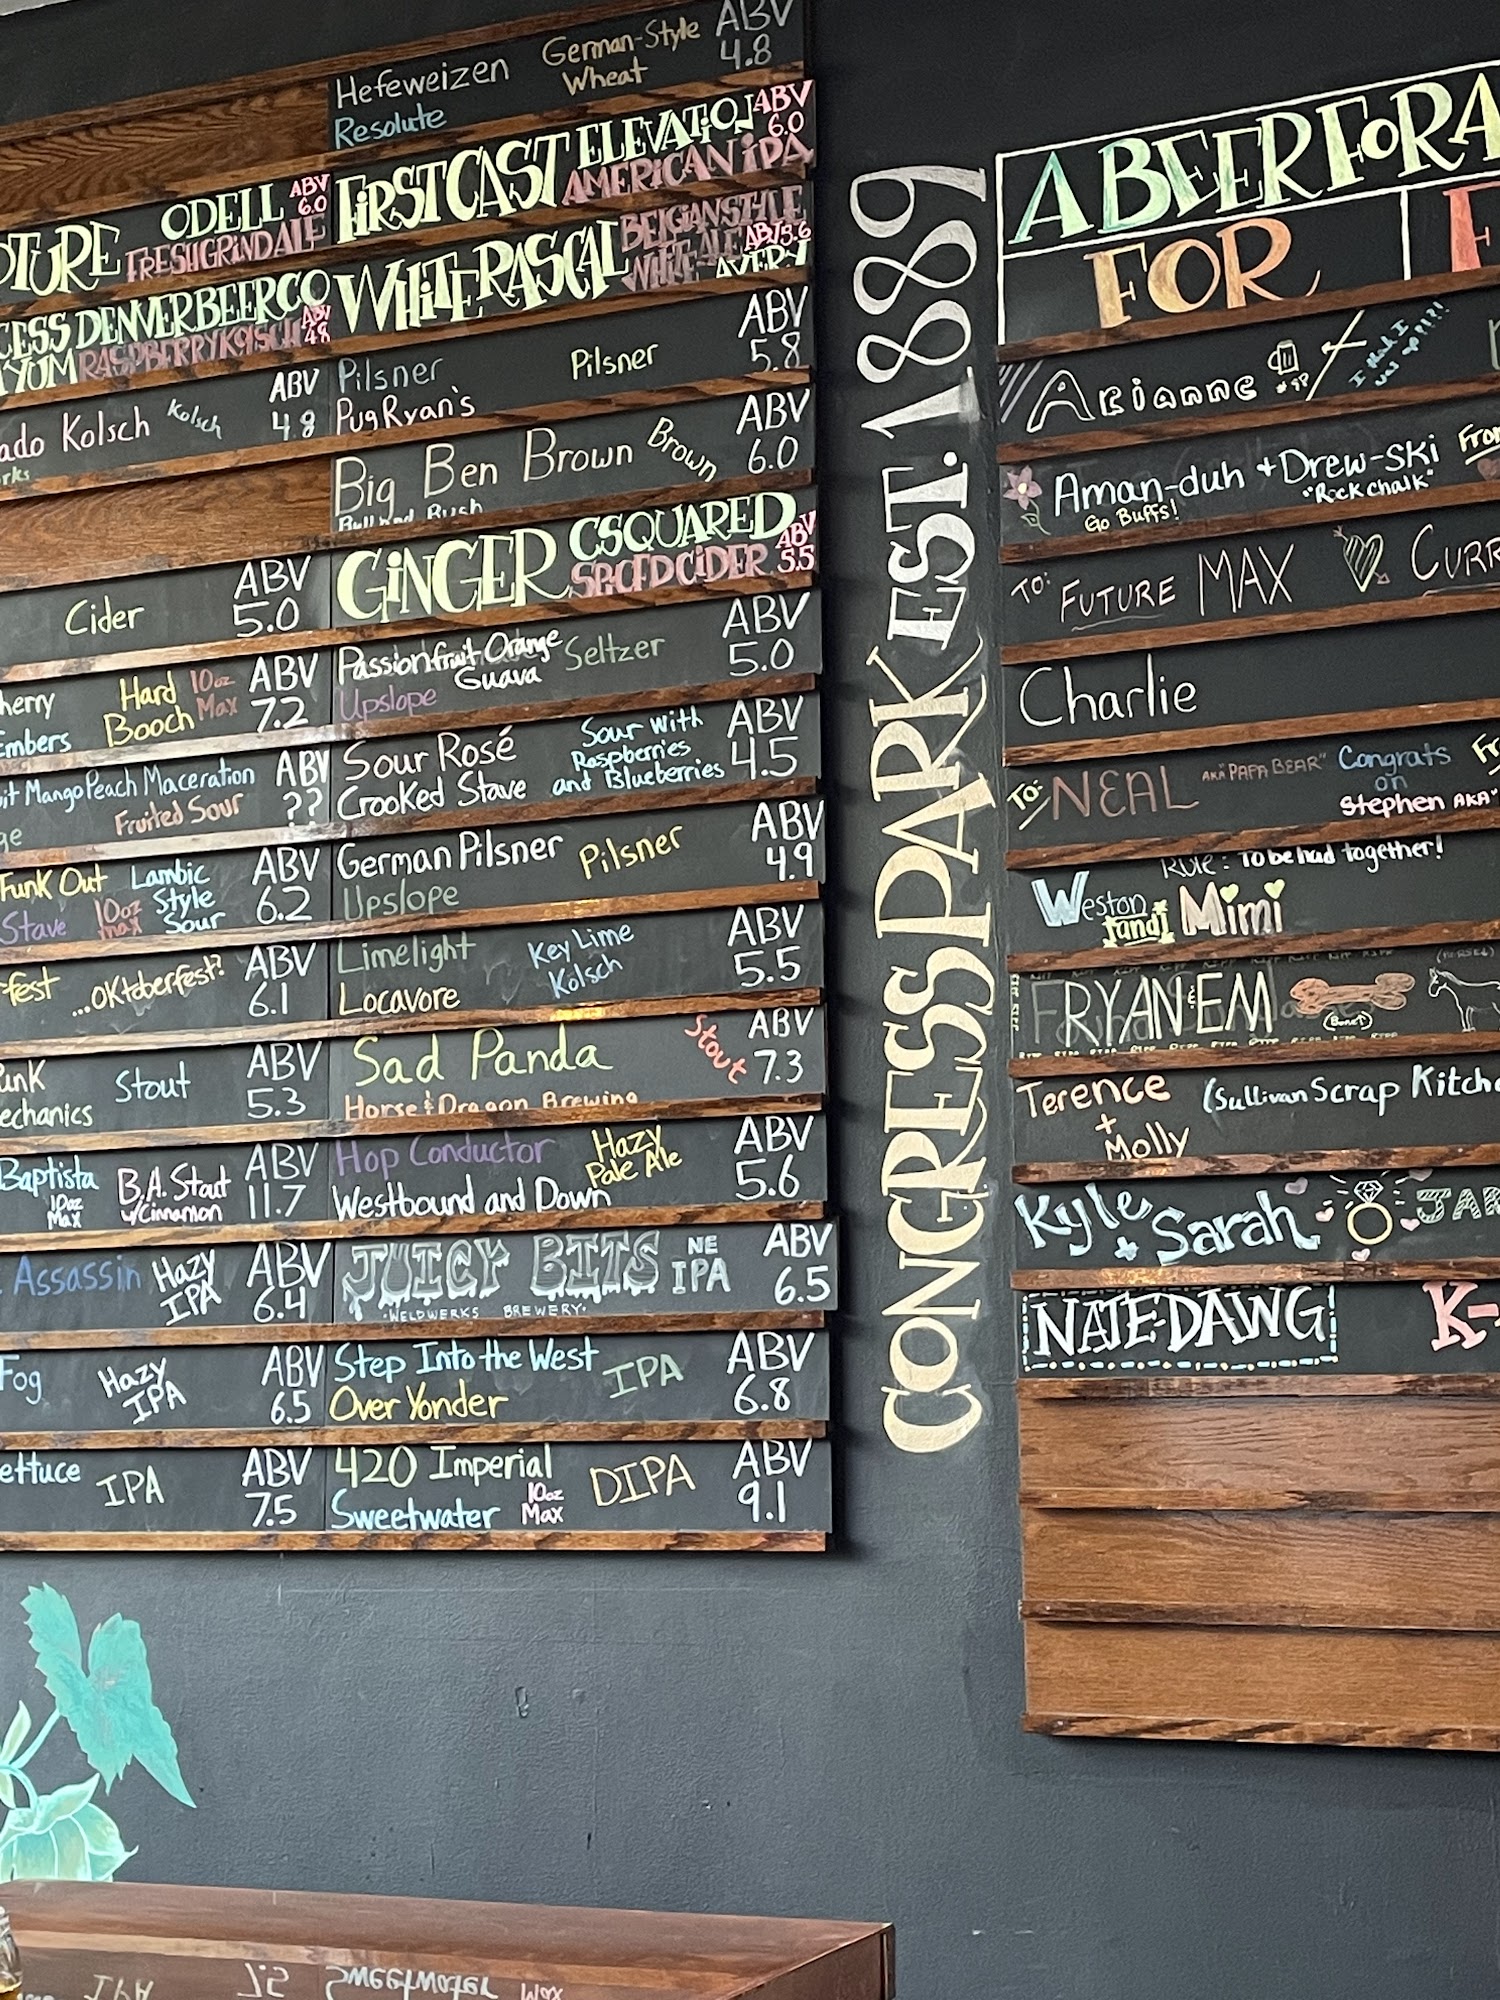 Hefeweizen German-Style Wheat ABV 4.8
Resolute
ODELL ABV 6.0
FRESH GRIND ALE
FIRST CAST ELEVATION ABV 6.0
AMERICAN IPA
DENVER BEER CO
RASPBERRY ABV 4.8
WHITE RASCAL BELGIAN STYLE
WHITE ALE ABV 5.6
AVERY
Kolsch Kolsch ABV 4.8
Pilsner Pilsner ABV 5.8
PugRyan's
Big Ben Brown Brown ABV 6.0
Cider ABV 5.0
GINGER CSQUARED
SPICED CIDER ABV 5.5
Hard Booch 10oz Max ABV 7.2
Embers
Passionfruit Orange Guava Seltzer ABV 5.0
Upslope
Mango Peach Maceration ABV ??
Fruited Sour
Sour Rosé Sour with Raspberries and Blueberries ABV 4.5
Crooked Stave
Funk Out Lambic Style Sour ABV 6.2
Stave 10oz max
German Pilsner Pilsner ABV 4.9
Upslope
...oktoberfest? ABV 6.1
Limelight Key Lime Kolsch ABV 5.5
Locavore
Stout ABV 5.3
Sad Panda Stout ABV 7.3
Horse & Dragon Brewing
Baptista B.A. Stout w/Cinnamon ABV 11.7
10oz Max
Hop Conductor Hazy Pale Ale ABV 5.6
Westbound and Down
Assassin Hazy IPA ABV 6.4
JUICY BITS NE IPA ABV 6.5
WELDWERKS BREWERY
Fog Hazy IPA ABV 6.5
Step Into the West IPA ABV 6.8
Over Yonder
IPA ABV 7.5
420 Imperial DIPA ABV 9.1
Sweetwater 10oz Max
CONGRESS PARK EST. 1889
A BEER FOR A
FOR
Arianne
Aman-duh + Drew-ski
Go Buffs! "Rock chalk"
TO: FUTURE MAX
Charlie
To: NEAL AKA "PAPA BEAR" Congrats on
Stephen AKA"
Rule: To be had together!
Weston and Mimi
RYAN & EM
(Bones)
Terence + Molly (Sullivan Scrap
Kyle + Sarah
NATE-DAWG K-